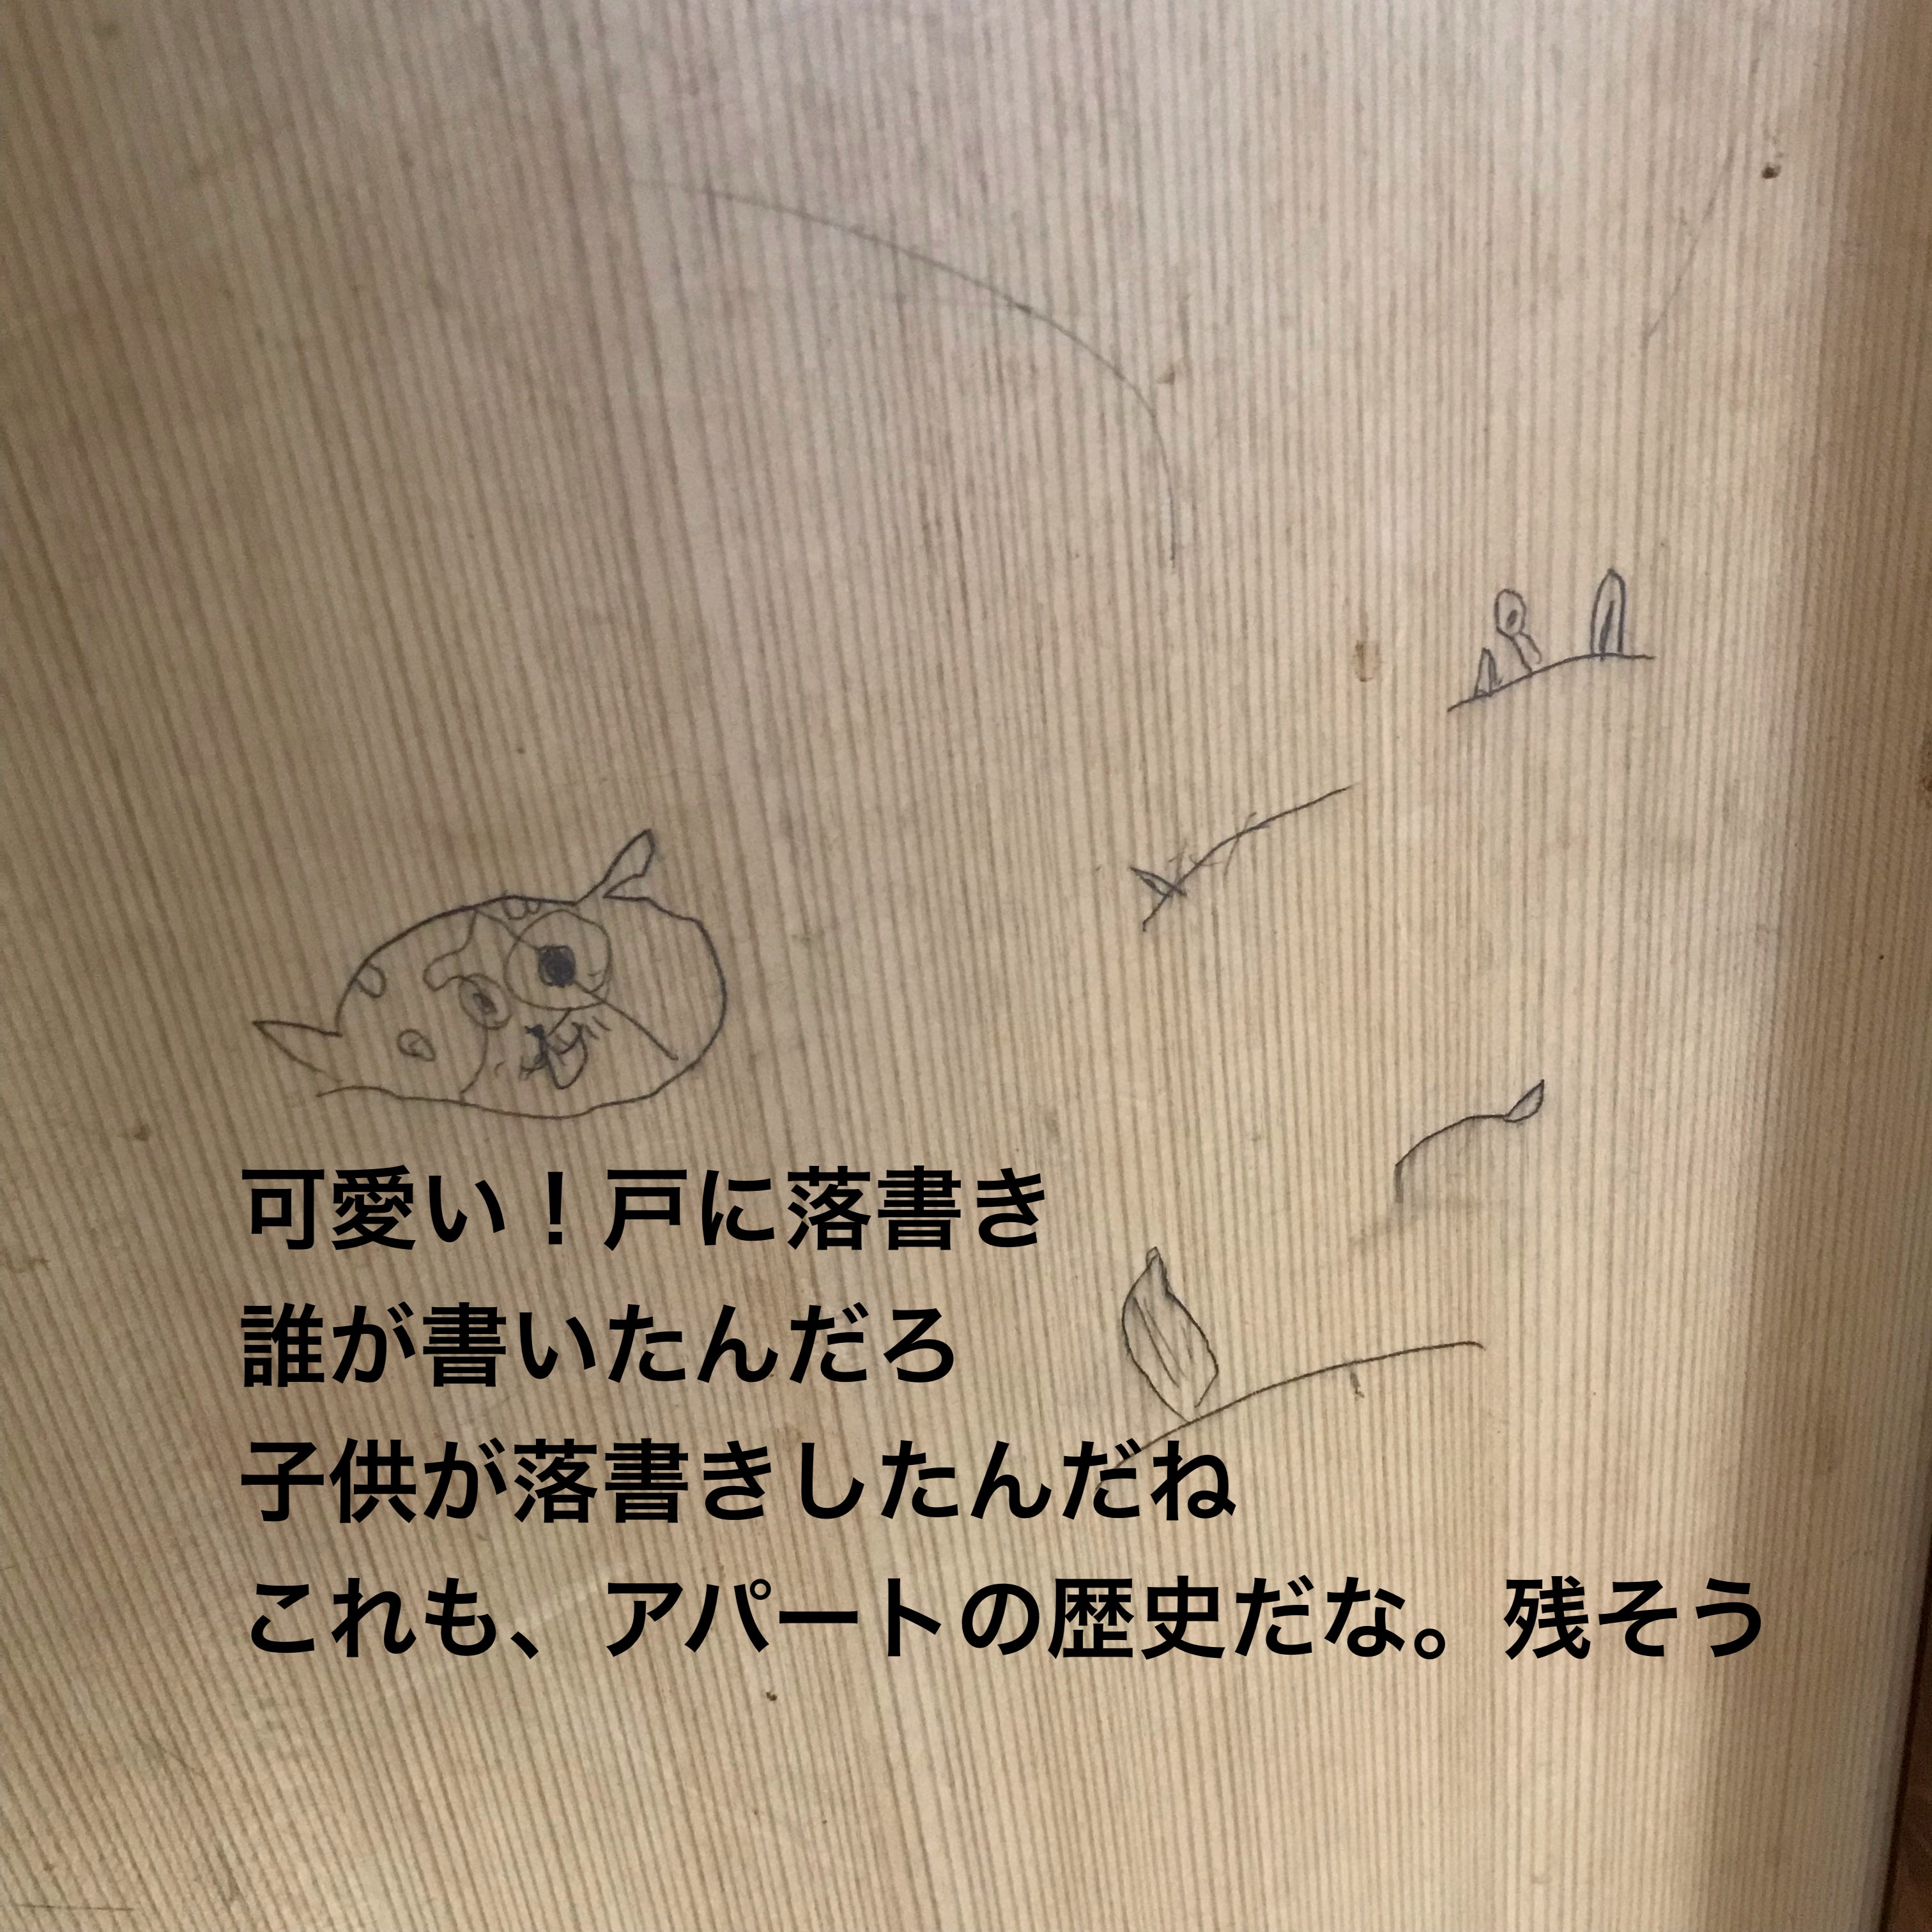 可愛い！戸に落書き
誰が書いたんだろ
子供が落書きしたんだね
これも、アパートの歴史だな。残そう